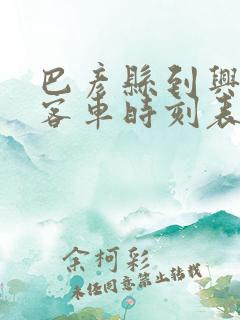 巴彥縣到興
客車時刻表
余柯彩
未經同意禁止轉載